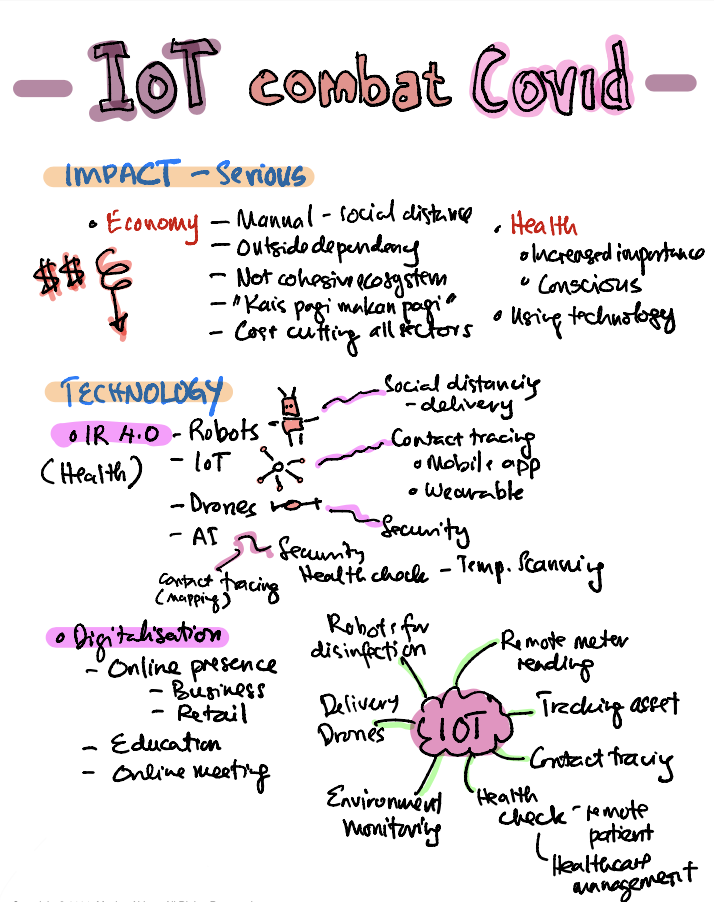 IoT combat Covid
IMPACT - Serious
• Economy
$$
- Manual - social distance
- Outside dependency
- Not cohesive ecosystem
- "Kais pagi makan pagi"
- Cost cutting all sectors
• Health
• Increased importance
• Conscious
• Using technology
TECHNOLOGY
• IR 4.0
(Health)
- Robots
Social distancing
- delivery
- IoT
Contact tracing
• Mobile app
• Wearable
- Drones
Security
- AI
Contact tracing
(mapping)
Security
Health check - Temp. Scanning
• Digitalisation
- Online presence
- Business
- Retail
- Education
- Online meeting
IOT
Robots for
disinfection
Remote meter
reading
Delivery
Drones
Tracking asset
Contact tracing
Environment
monitoring
Health
check - remote
patient
Healthcare
management